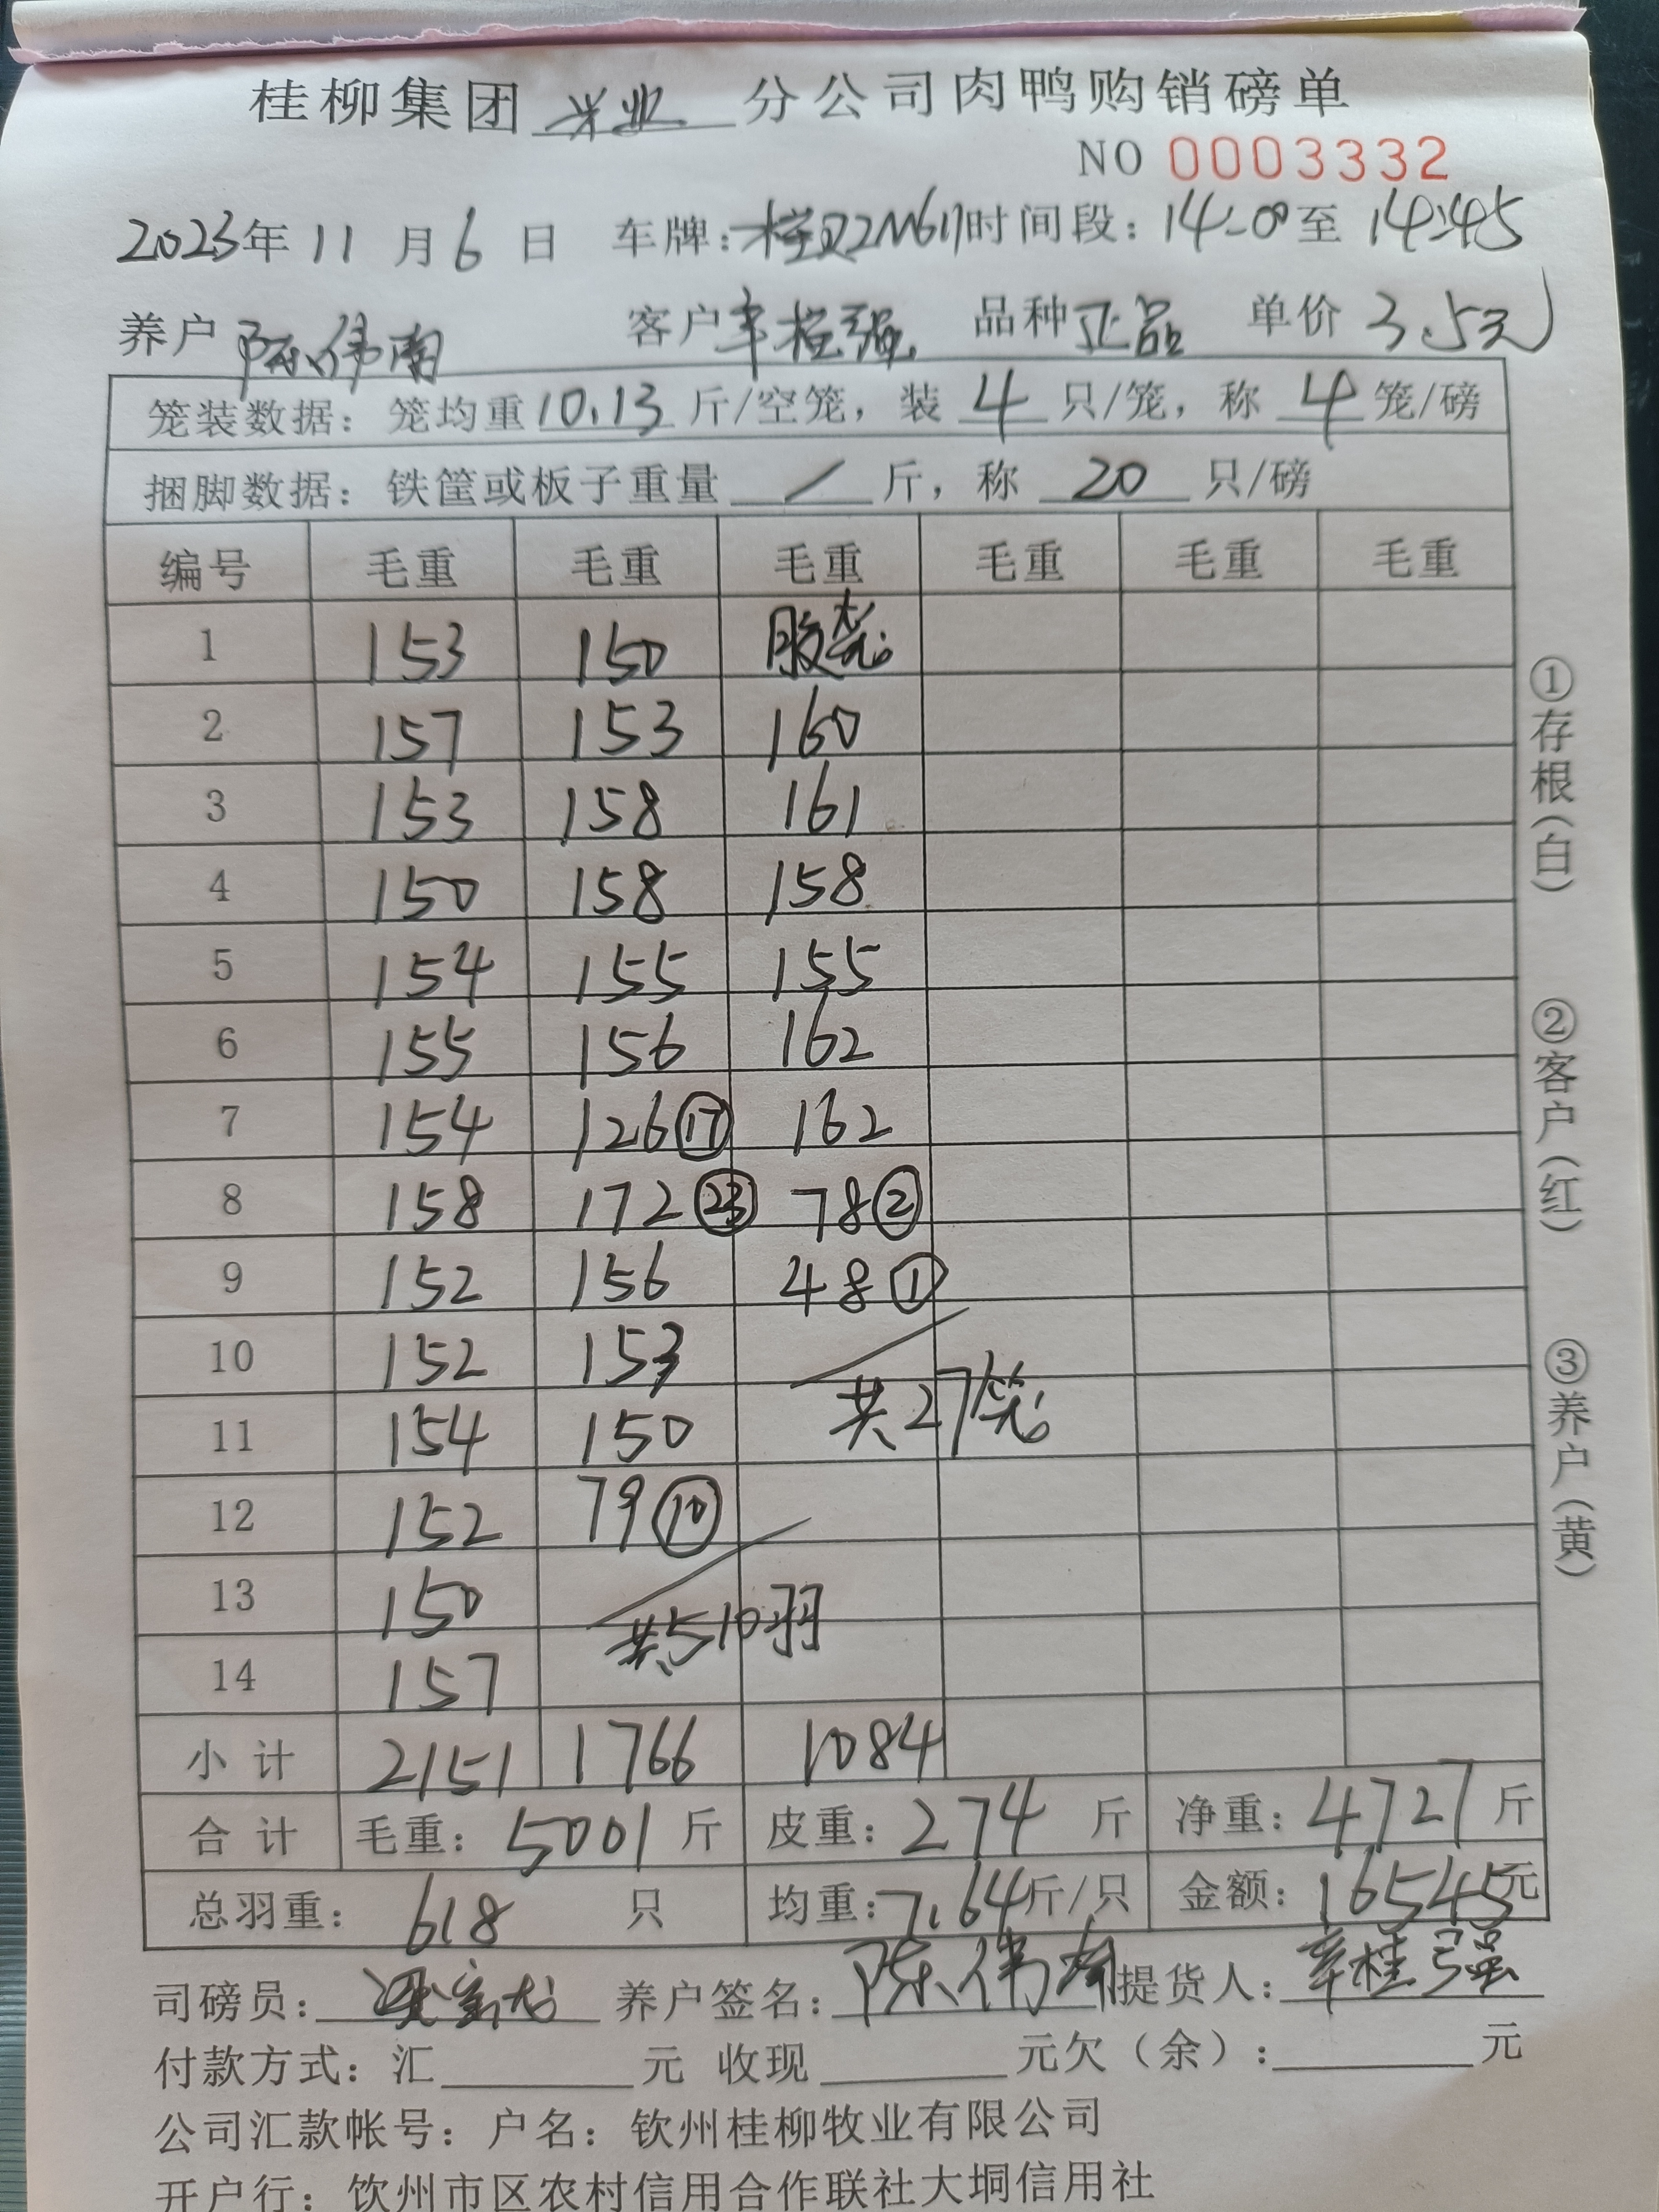 桂柳集团 兴业 分公司肉鸭购销磅单
NO 0003332
2023年 11 月 6 日 车牌:桂 时间段: 14:00至 14:45
养户 陈伟南 客户 辛桂强 品种 正品 单价 3.5元
笼装数据: 笼均重 10.13 斤/空笼, 装 4 只/笼, 称 4 笼/磅
捆脚数据: 铁筐或板子重量 / 斤, 称 20 只/磅
编号 毛重 毛重 毛重 毛重 毛重 毛重
1 153 150 胶笼
2 157 153 160
3 153 158 161
4 150 158 158
5 154 155 155
6 155 156 162
7 154 126⑰ 162
8 158 172㉓ 78②
9 152 156 48①
10 152 153
11 154 150 共27笼
12 152 79⑩
13 150 共510羽
14 157
小计 2151 1766 1084
合计 毛重: 5001 斤 皮重: 274 斤 净重: 4727 斤
总羽重: 618 只 均重: 7.64斤/只 金额: 16545元
司磅员: 养户签名: 陈伟南 提货人: 辛桂强
付款方式: 汇 元 收现 元欠(余): 元
公司汇款帐号: 户名: 钦州桂柳牧业有限公司
开户行: 钦州市区农村信用合作联社大垌信用社
①存根(白)
②客户(红)
③养户(黄)